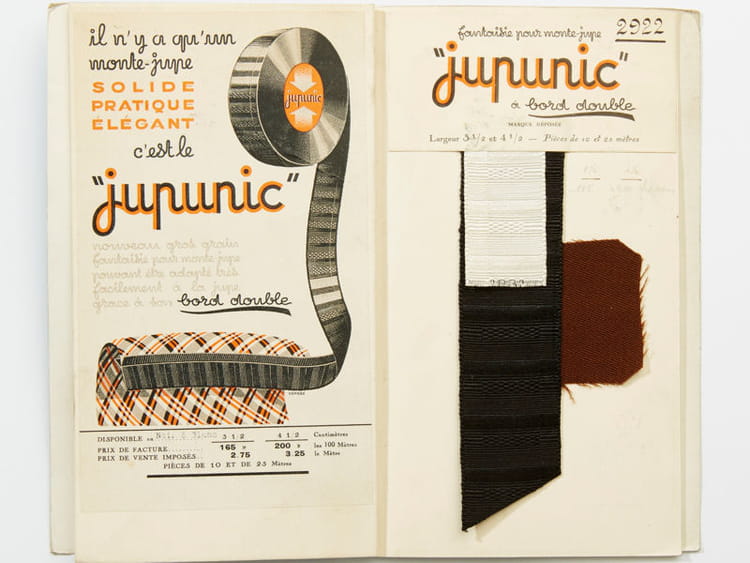 il n'y a qu'un
monte-jupe
SOLIDE
PRATIQUE
ÉLÉGANT
c'est le
"jupunic"
jupunic
nouveau gros grain
fantaisie pour monte jupe
pouvant être adapté très
facilement à la jupe
grace à son bord double
DISPONIBLE EN Noir & Blanc 3 1/2 4 1/2 Centimètres
PRIX DE FACTURE 165 » 200 » les 100 Mètres
PRIX DE VENTE IMPOSÉS 2.75 3.25 le Mètre
PIÈCES DE 10 ET DE 25 Mètres
fantaisie pour monte-jupe 2922
"jupunic"
à bord double
MARQUE DÉPOSÉE
Largeur 3 1/2 et 4 1/2 — Pièces de 12 et 25 mètres